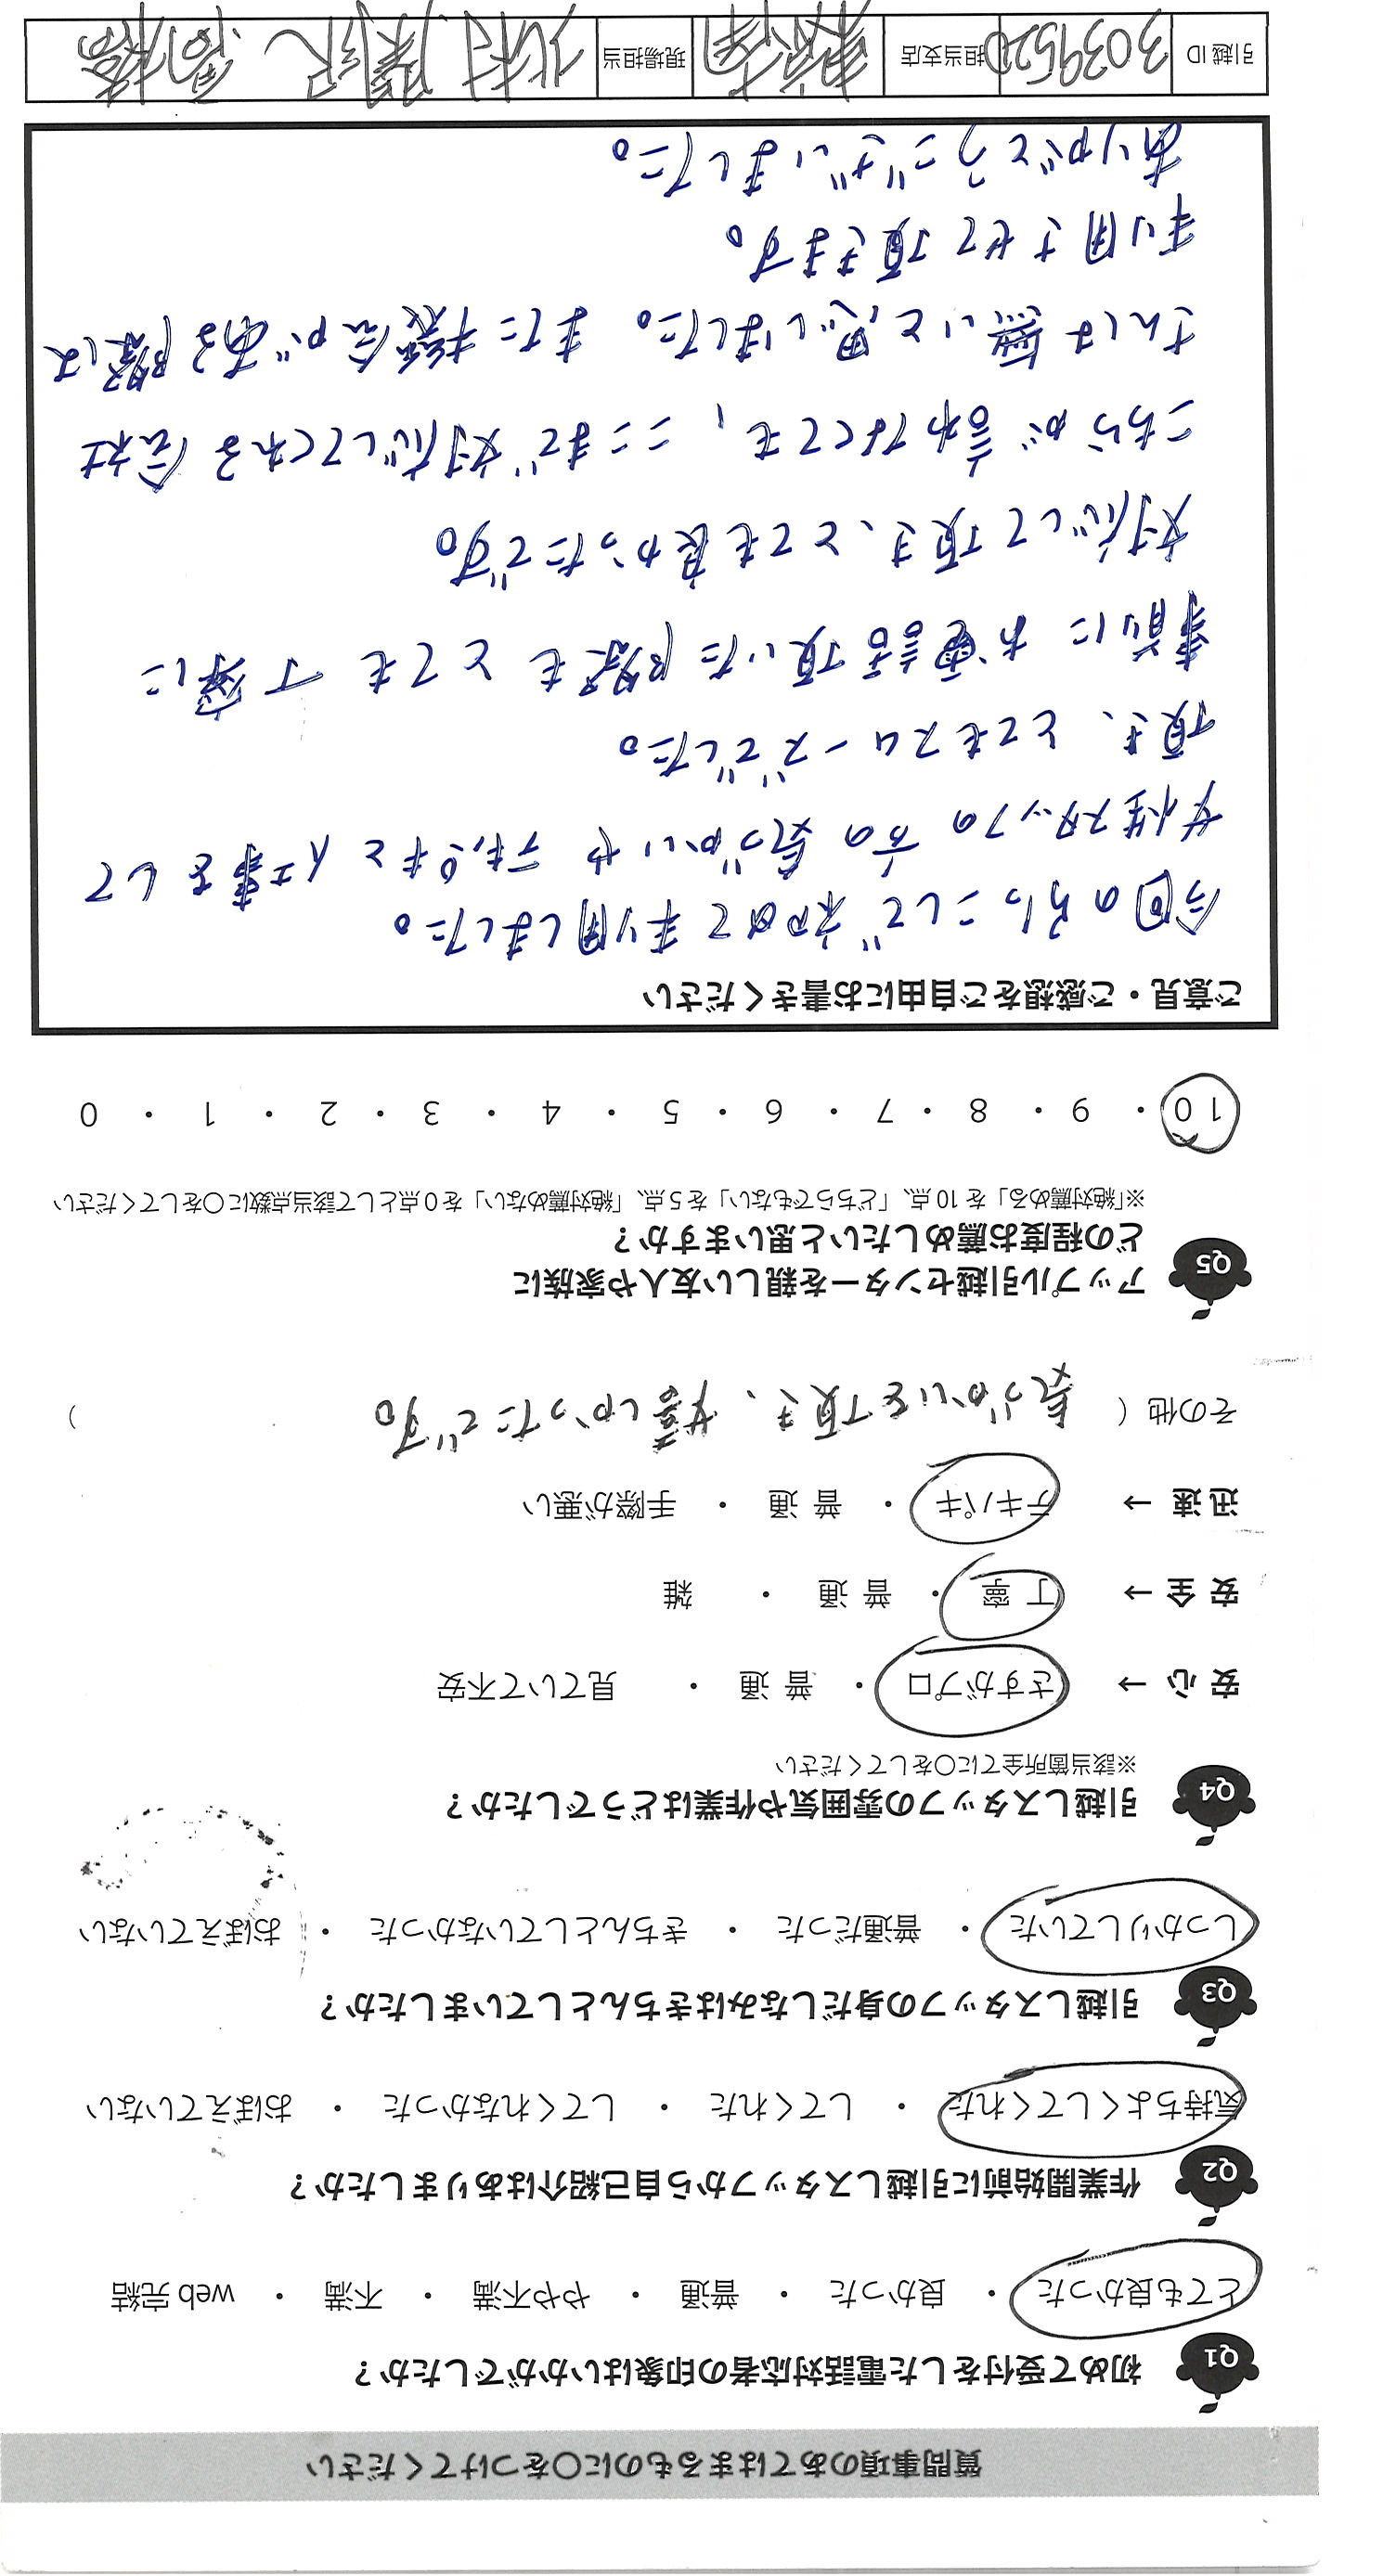 質問事項のあてはまるものに〇をつけてください
Q1 初めて受付をした電話対応者の印象はいかがでしたか？
とても良かった ・ 良かった ・ 普通 ・ やや不満 ・ 不満 ・ web 完結
Q2 作業開始前に引越しスタッフから自己紹介はありましたか？
気持ちよくしてくれた ・ してくれた ・ してくれなかった ・ おぼえていない
Q3 引越しスタッフの身だしなみはきちんとしていましたか？
しっかりしていた ・ 普通だった ・ きちんとしていなかった ・ おぼえていない
Q4 引越しスタッフの雰囲気や作業はどうでしたか？
※該当箇所全てに〇をしてください
安 心 → さすがプロ ・ 普 通 ・ 見ていて不安
安 全 → 丁 寧 ・ 普 通 ・ 雑
迅 速 → テキパキ ・ 普 通 ・ 手際が悪い
その他（ 気づかいを頂き、嬉しかったです。 ）
Q5 アップル引越センターを親しい友人や家族に
どの程度お薦めしたいと思いますか？
※「絶対薦める」を 10 点、「どちらでもない」を 5 点、「絶対薦めない」を 0 点として該当点数に〇をしてください
10 ・ 9 ・ 8 ・ 7 ・ 6 ・ 5 ・ 4 ・ 3 ・ 2 ・ 1 ・ 0
ご意見・ご感想をご自由にお書きください
今回の引っこしで初めて利用しました。
女性スタッフの方の気づかいやテキパキと仕事をして
頂き、とてもスムーズでした。
事前にお電話頂いた際もとても丁寧に
対応して頂き、とても良かったです。
こちらが言わなくても、ここまで対応してくれる会社
さんは無いと思いました。また機会がある際は
利用させて頂きます。
ありがとうございました。
引越 ID 3039520 担当支店 現場担当 北村 高橋